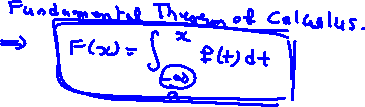 Fundamental Theorem of Calculus.
⇒ F(x) = ∫_{-∞}^{x} f(t) dt
a